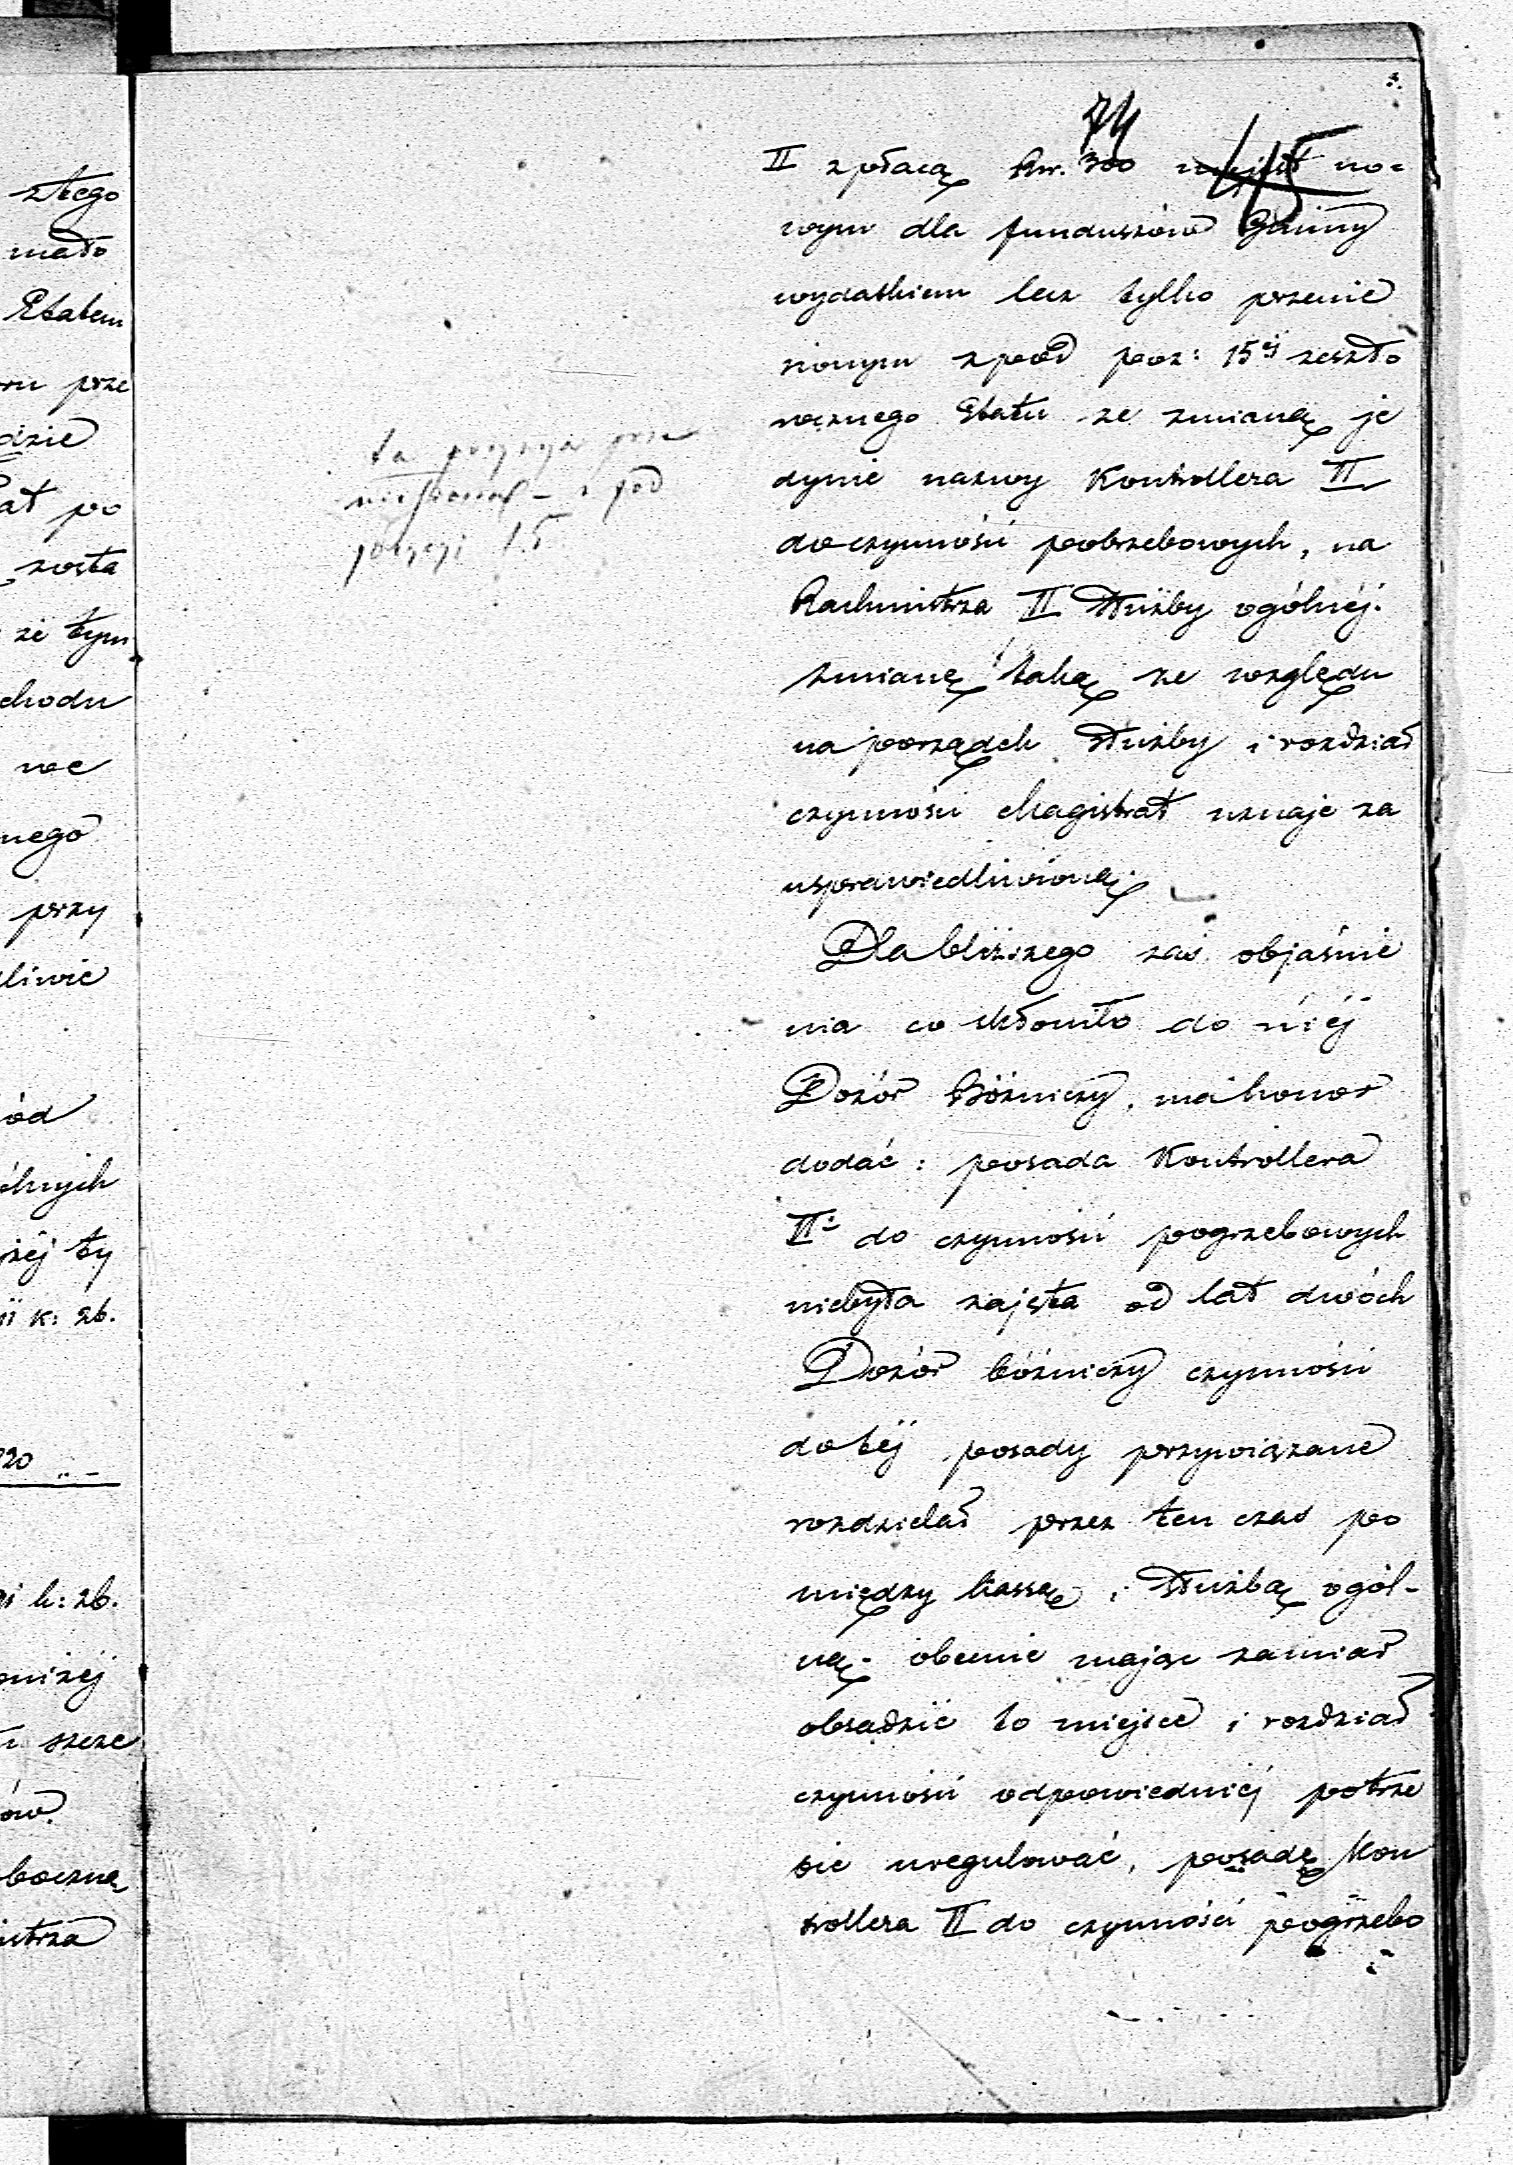 74
45
II z płacą Rsr. 300 niejest no-
wym dla funduszów Gminy
wydatkiem lecz tylko przenie
sionym zpod poz: 15ej zeszło
rocznego Etatu ze zmianą je
dynie nazwy Kontrollera II
do czynności pobrzebowych, na
Rachmistrza II Służby ogólnéj.
zmianę taką ze względu
na porządek Służby i rozdział
czynności Magistrat uznaje za
usprawiedliwioną.
Dla bliższego zaś objaśnie
nia co skłoniło do niéj
Dozór Bóżniczy, ma honor
dodać: posada Kontrollera
IIi do czynności pogrzebowych
niebyła zajęta od lat dwóch
Dozór bóżniczy czynności
do téj posady przywiązane
rozdzielał przez ten czas po
między kassę i Służbą ogól-
ną. obecnie mając zamiar
obsadzić to miejsce i rozdział
czynności odpowiedniéj potrze
bie uregulować, posadę Kon
trollera II do czynności pogrzebo
ta pozycya prze
niesioną - z pod
pozycyi 15
złego
mało
Etatem
prze
dzie
po
zosta
że tym
chodu
nego
przy
liwie
ód
żéj ty
k: sb.
20 " -
k: sb.
niżéj
szcze
ów.
boczną
istrza